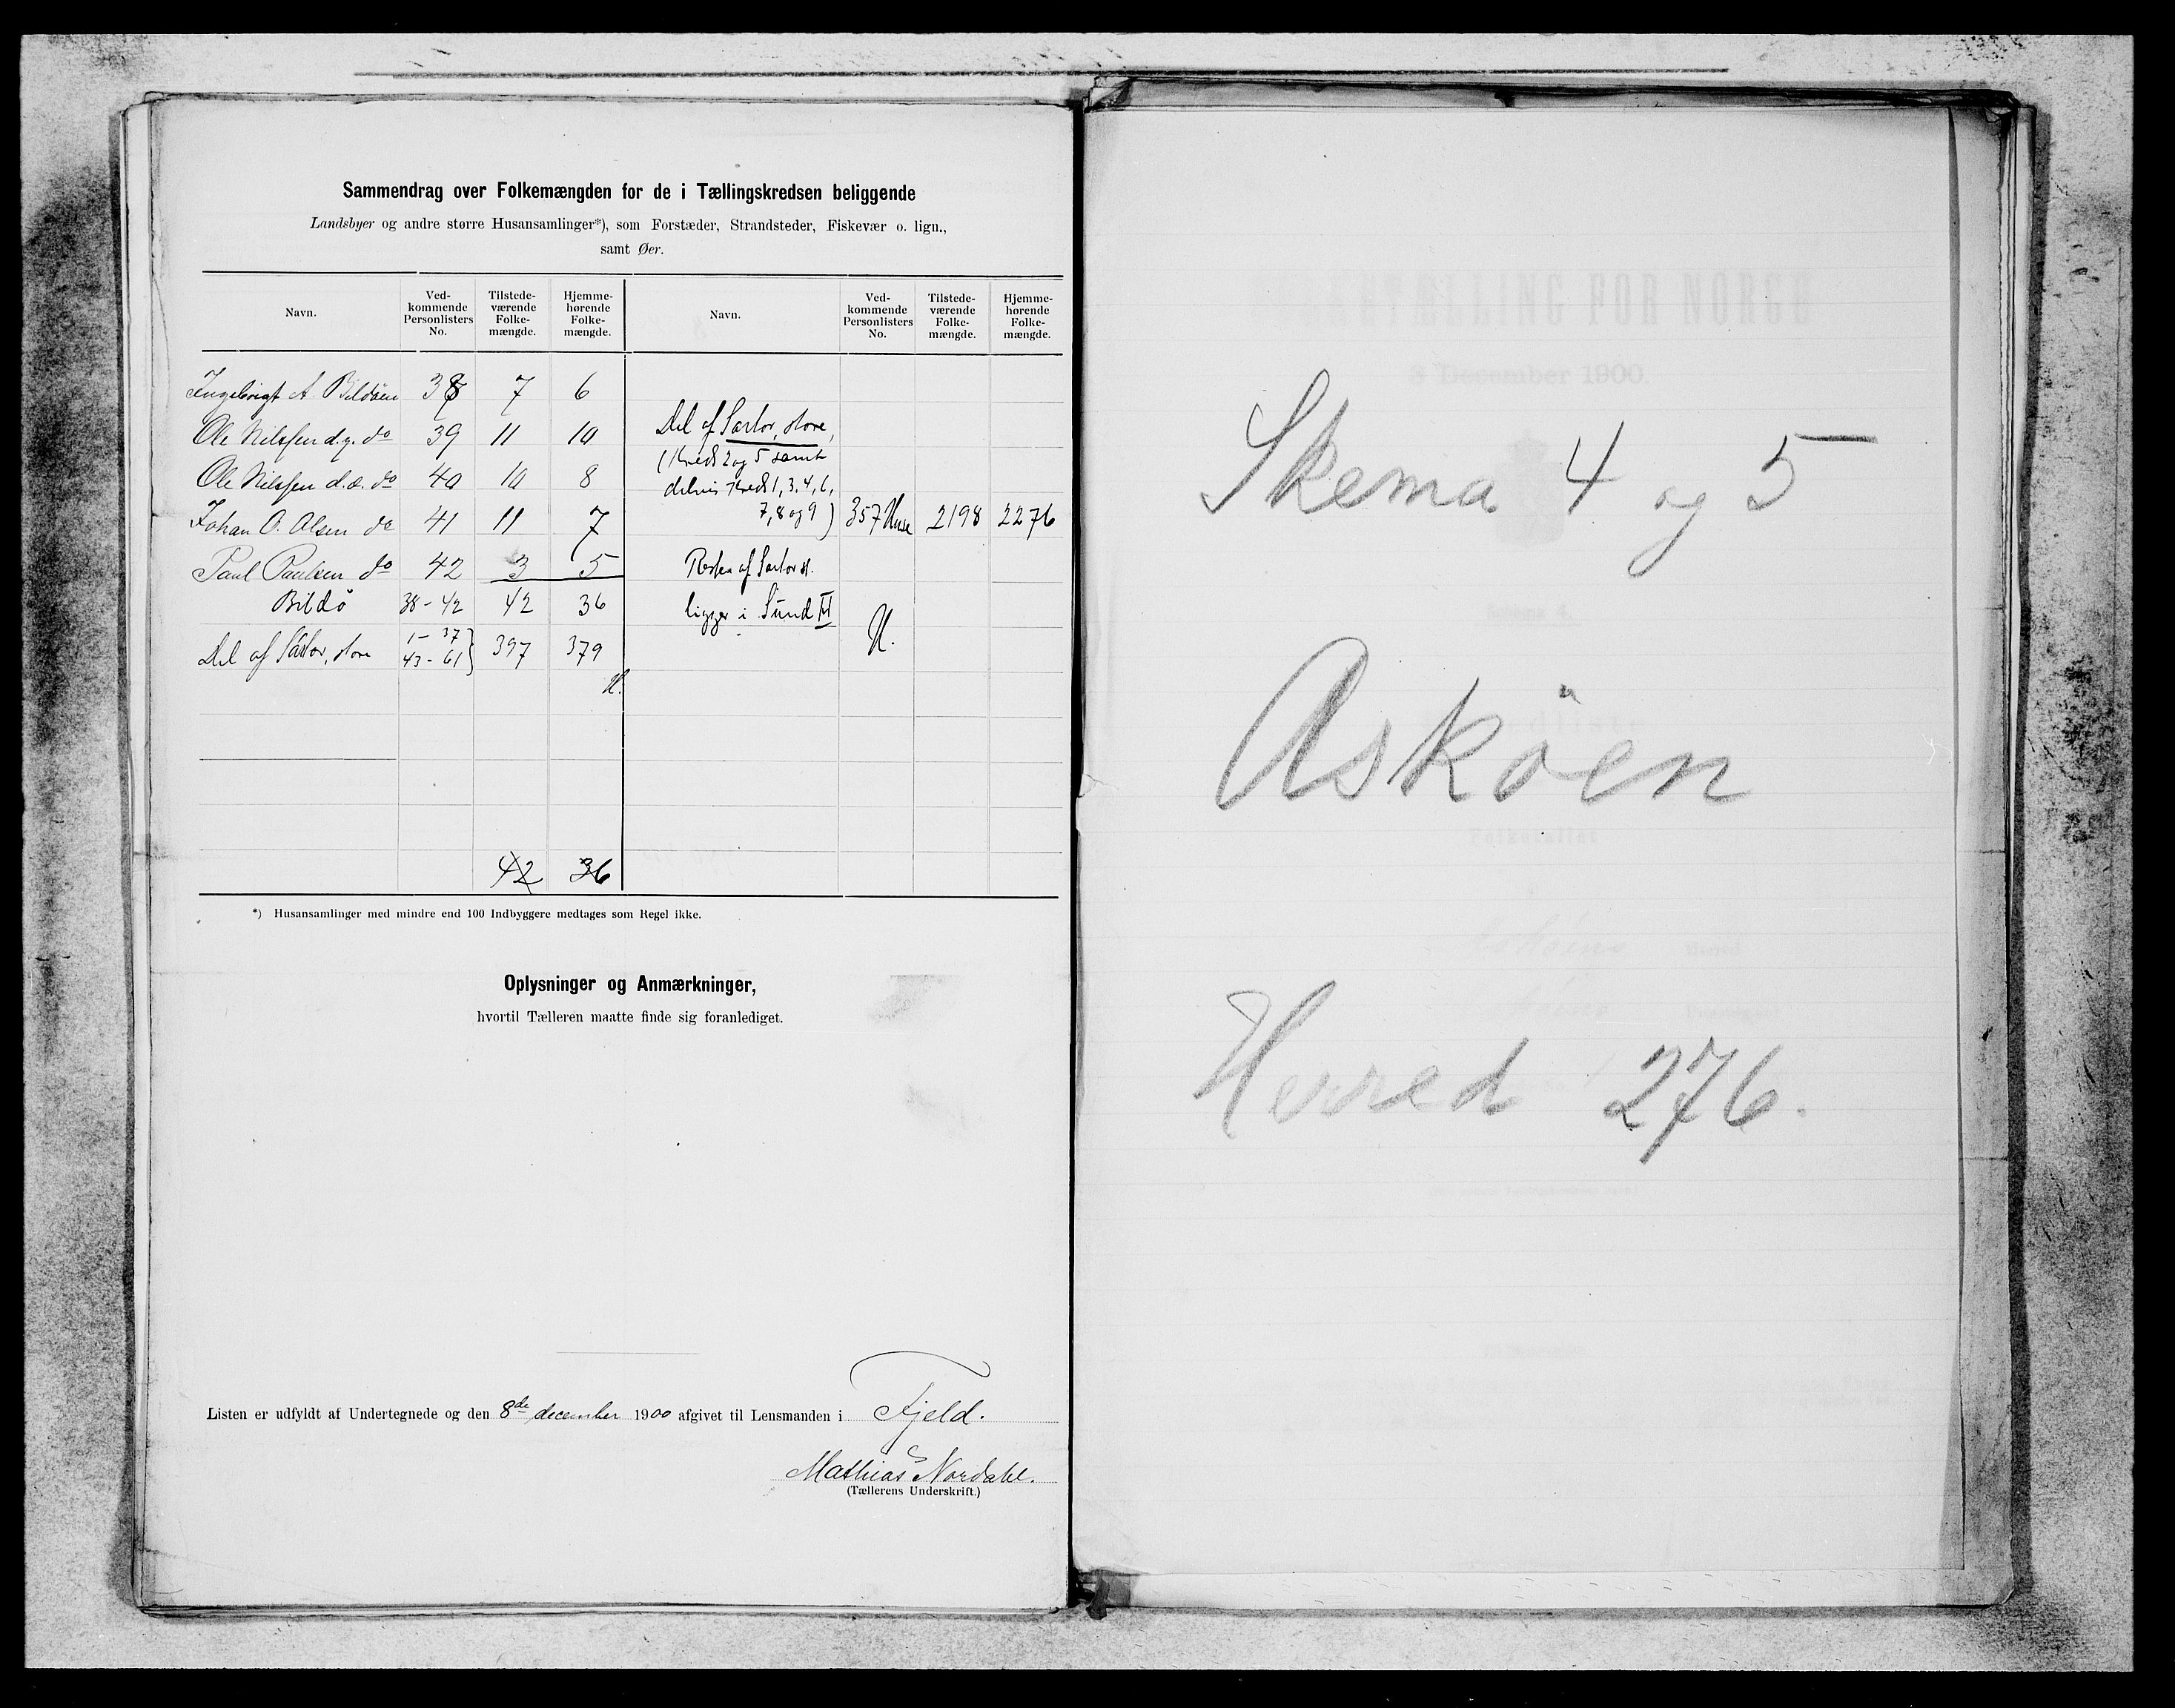 Sammendrag over Folkemængden for de i Tællingskredsen beliggende
Landsbyer og andre større Husansamlinger*), som Forstæder, Strandsteder, Fiskevær o. lign.,
samt Øer.
Navn. Ved-kommende Personlisters No. Tilstede-værende Folke-mængde. Hjemme-hørende Folke-mængde. Navn. Ved-kommende Personlisters No. Tilstede-værende Folke-mængde. Hjemme-hørende Folke-mængde.
Ingebrigt A. Bildöen 38 7 6
Ole Nilssen d.y. do 39 11 10
Ole Nilssen d.æ. do 40 10 8
Johan O. Olsen do 41 11 7
Paul Paulsen do 42 3 5
Bildö 38-42 42 36
Del af Sartor, store 1-37 43-61} 397 379
H.
42 36
Del af Sartor, store,
(Kreds 2 og 5 samt
delvis Kreds 1, 3, 4, 6,
7, 8 og 9) 357 Huse 2198 2276
Resten af Sartor st.
ligger i Sund
H.
*) Husansamlinger med mindre end 100 Indbyggere medtages som Regel ikke.
Oplysninger og Anmærkninger,
hvortil Tælleren maatte finde sig foranlediget.
Listen er udfyldt af Undertegnede og den 8de december 1900 afgivet til Lensmanden i Fjeld.
Mathias Nordahl.
(Tællerens Underskrift.)
Skema 4 og 5
Asköen
Herred 276.